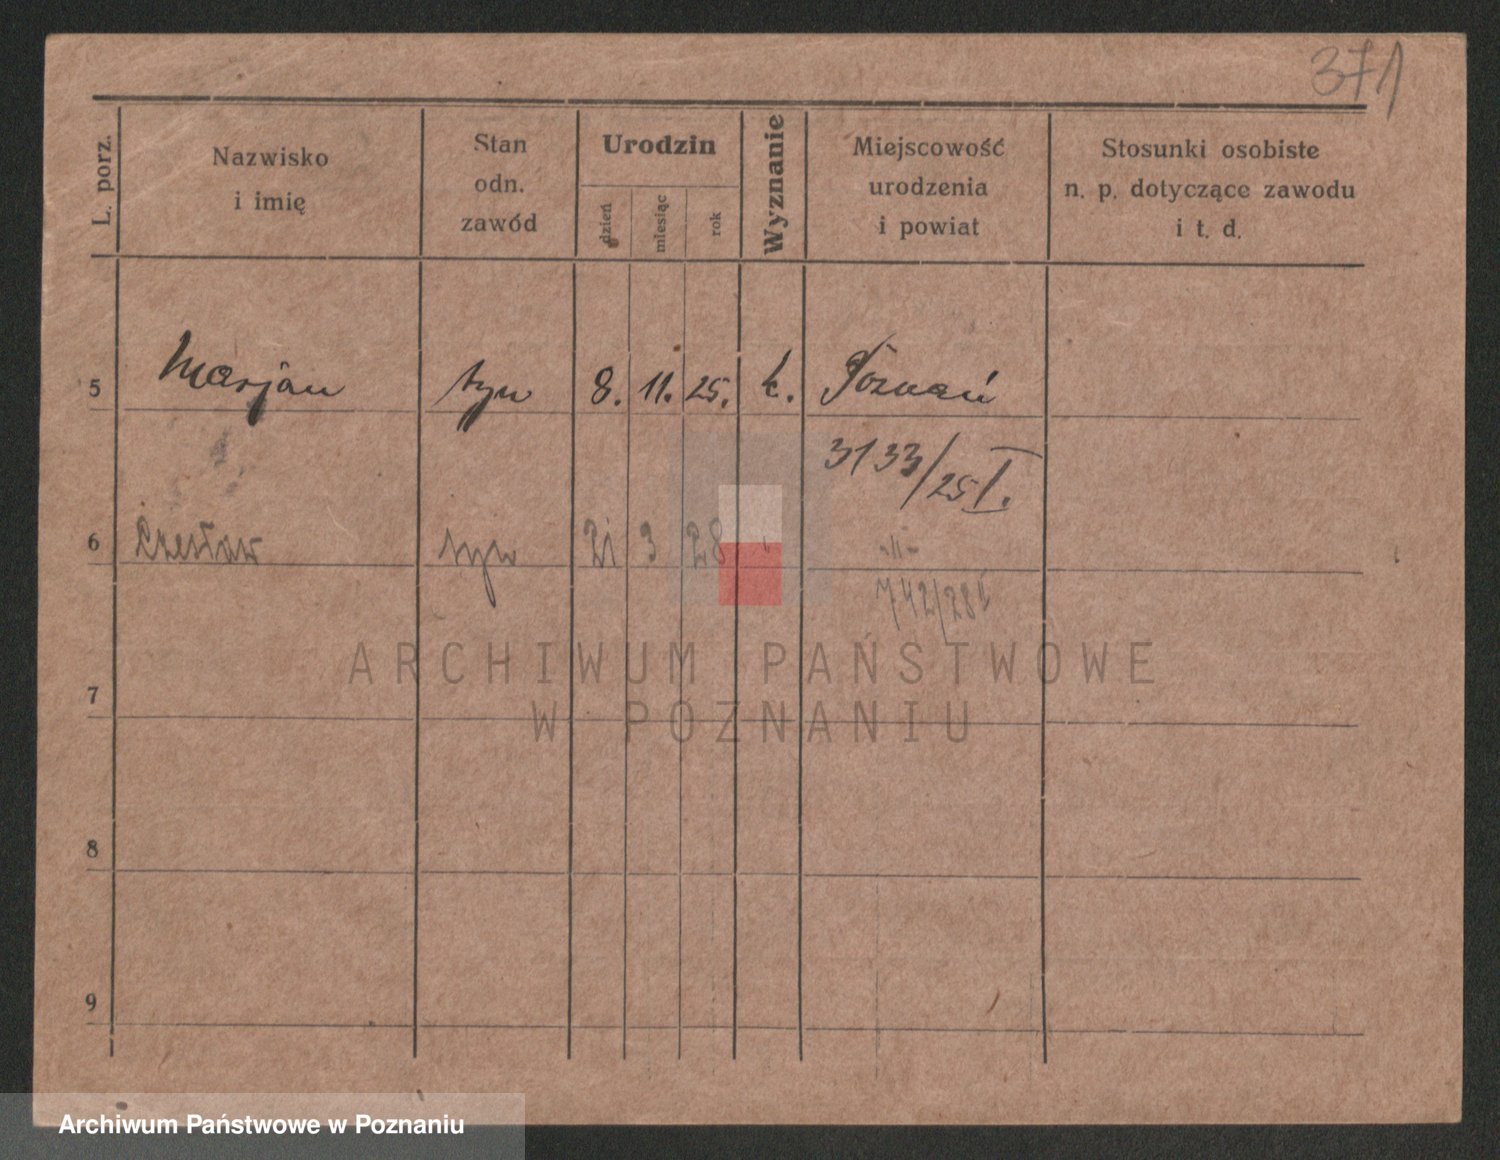 371
L. porz.
Nazwisko
i imię
Stan
odn.
zawód
Urodzin
dzień
miesiąc
rok
Wyznanie
Miejscowość
urodzenia
i powiat
Stosunki osobiste
n. p. dotyczące zawodu
i t. d.
5 Marjan syn 8. 11. 25. k. Poznań
3133/25 I.
6 Czesław syn 21 3 28 -"-
742/28 I
7
8
9
ARCHIWUM PAŃSTWOWE
W POZNANIU
Archiwum Państwowe w Poznaniu